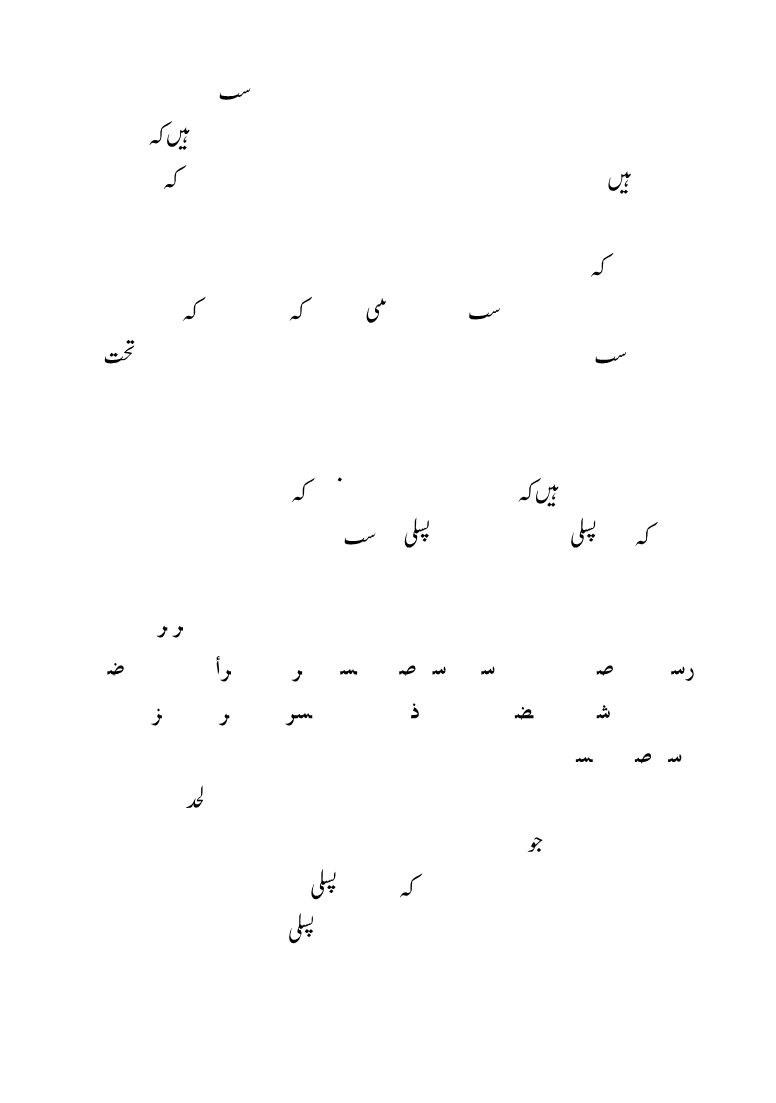 سب
ہیں کہ
ہیں کہ
کہ
سب می کہ کہ
سب تحت
ہیں کہ کہ
کہ پسلی پسلی سب
ر ر
رسـ صـ سـ سـ صـ ـسـ ر رأ ضـ
شـ ـضـ ذ ـسر ر ز
سـ صـ ـسـ
لحد
جو
کہ پسلی
پسلی